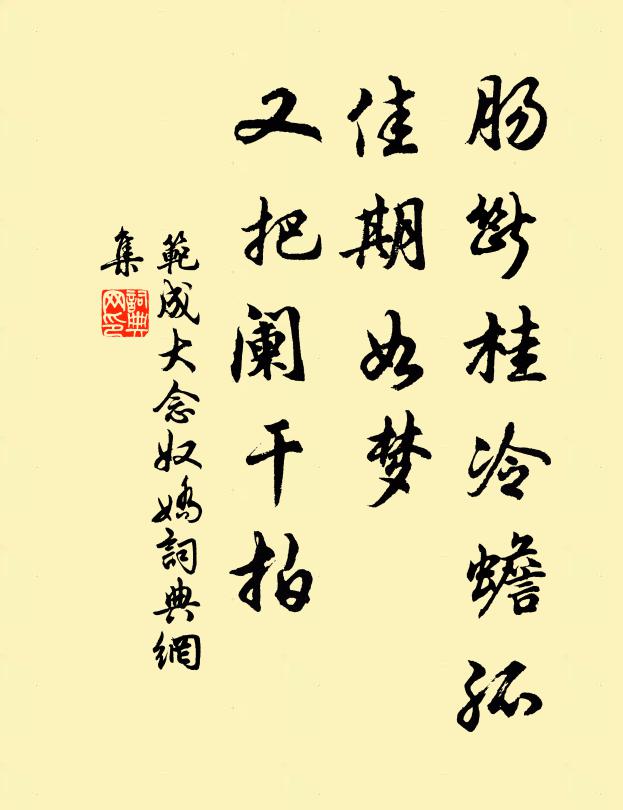 肠断桂冷蟾孤
佳期如梦
又把阑干拍
範成大念奴嬌詞典網
集
詞典
网印